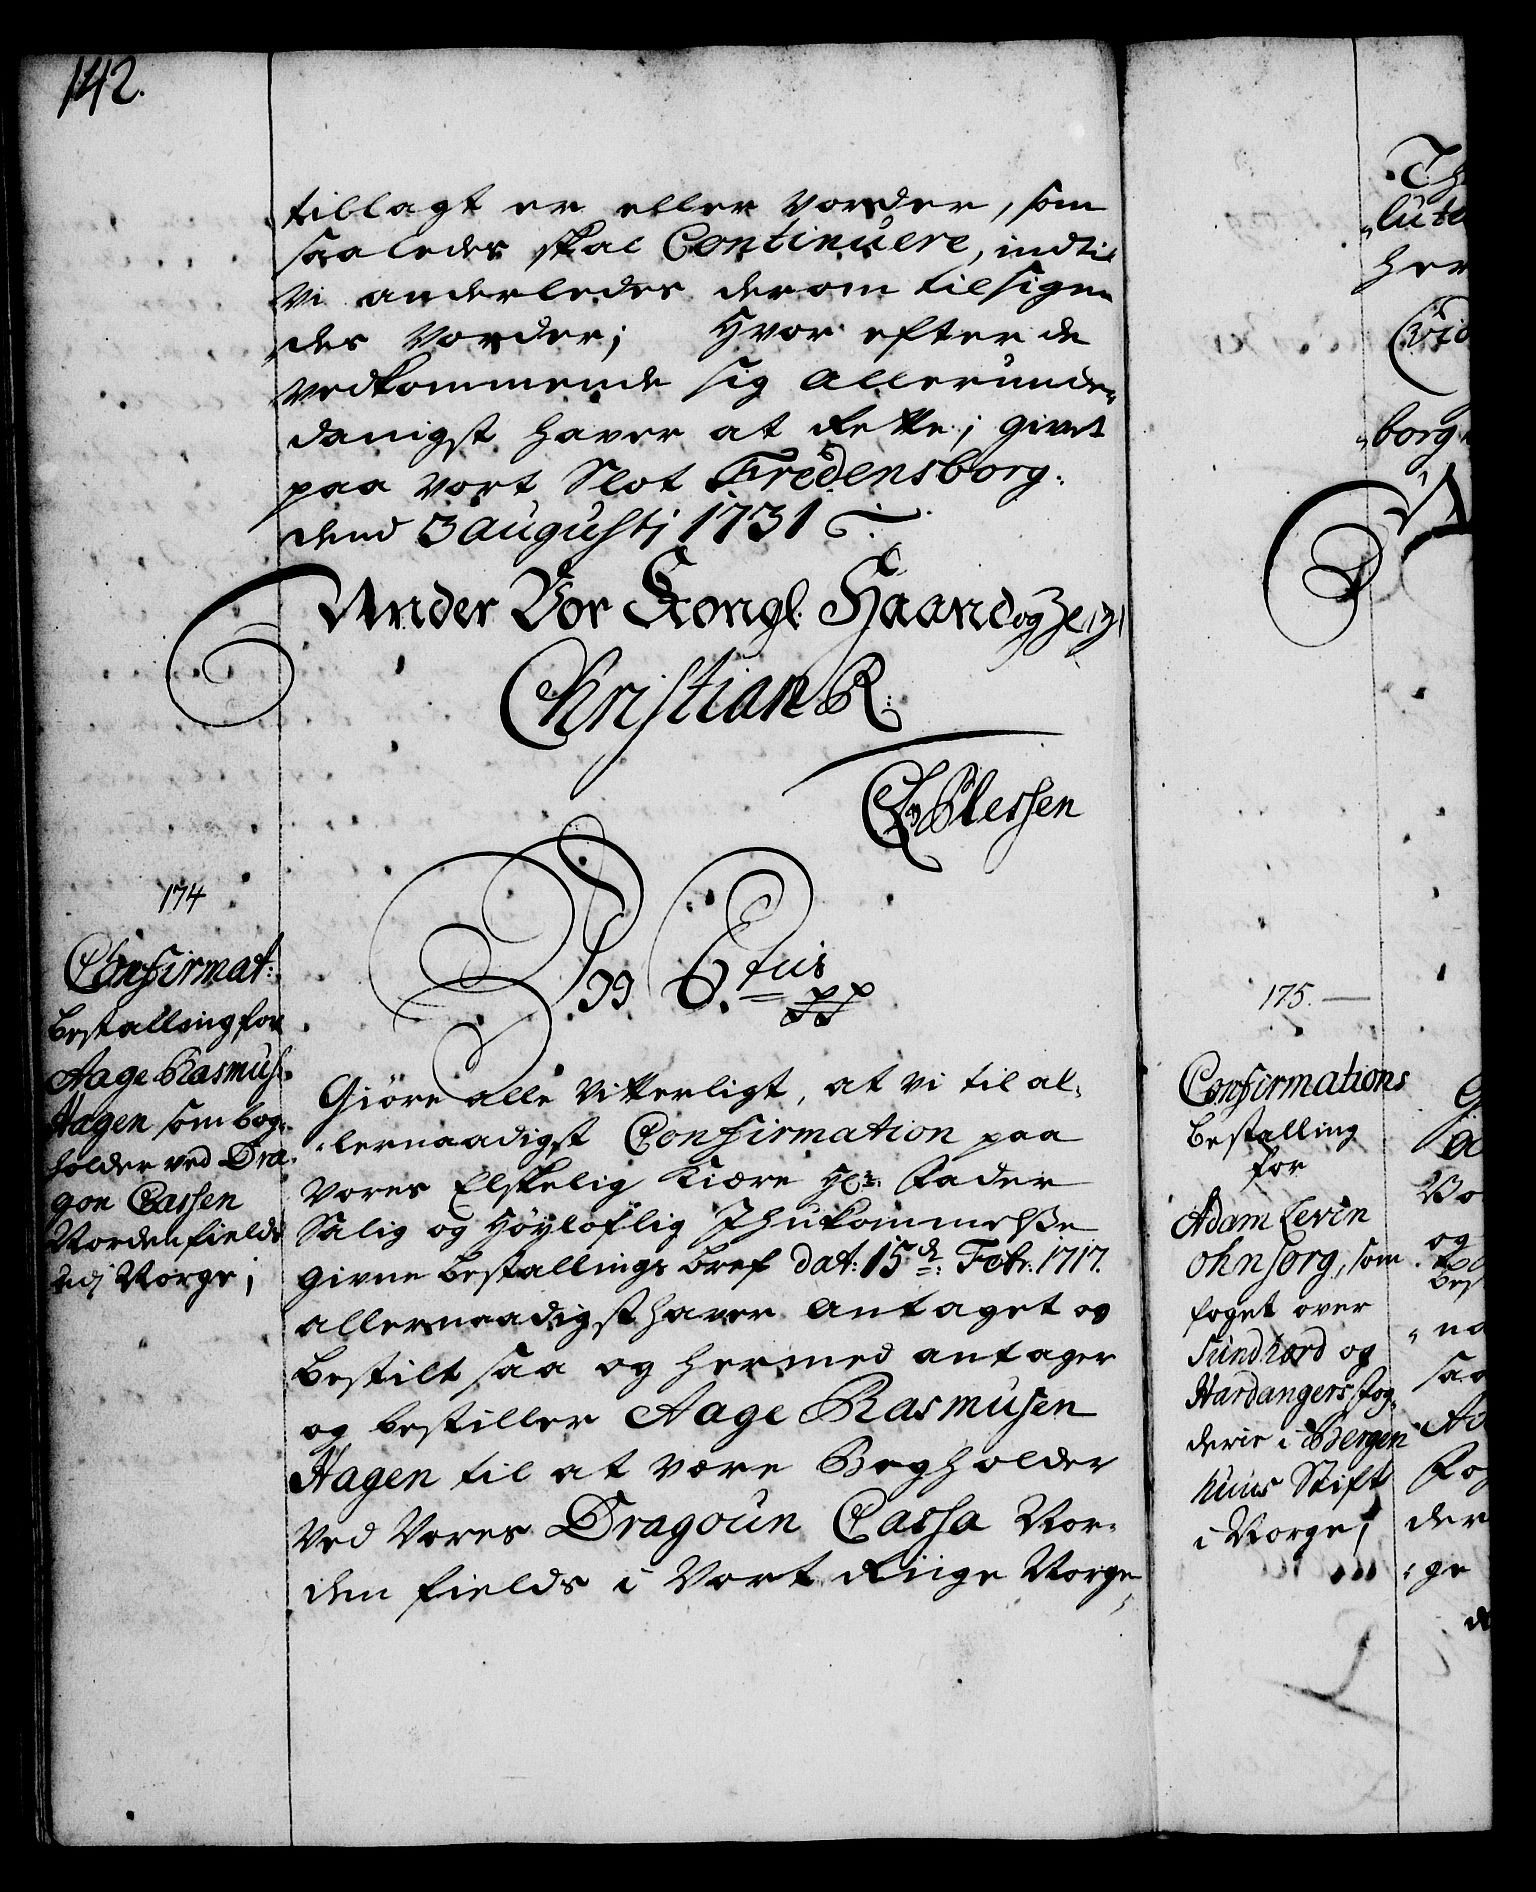 142.
tillagt er eller vorder, som
saaledes skal Continuere, indtil
vi anderledes derom tilsigen„
des vorder; Hvor efter de
vedkommende sig allerunde„
danigst haver at rette; givet
paa vort Slot Fredensborg.
dend 3 augustj 1731
Under Vor Kongl. Haand og
Christian R.
Plessen
174
Confirmat:
bestalling for
Aage Rasmus:
Hagen som bog„
holder ved Dra„
gon Cassen
Nordenfields
udj Norge;
C. 6.tus
pp
Giöre alle Vitterligt, at vi til al„
„lernaadigst Confirmation paa
vores Elskelig Kiære Hr: Fader
Salig og Höyloflig Ihukommelse
givne bestallings bref dat: 15de: Febr: 1717.
allernaadigst haver antaget og
bestilt saa og hermed antager
og bestiller Aage Rasmusen
Hagen til at være Bogholder
ved Vores Dragoun Cassa Nor„
den fields i Vort Riige Norge,
175.
Confirmations
bestalling
for
Adam Levin
ohnsorg, som
foget over
Sundhord og
Hardangers fog„
derie i Bergen
huus Stift
i Norge;
„lute
her
borg
Bo
og
best
„na
saa
Ad
Fog
der
„ge